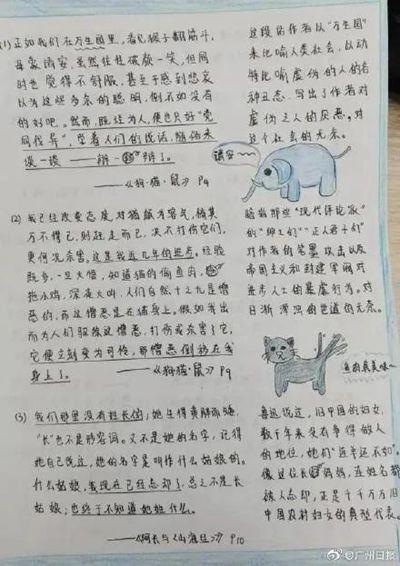 (1) 正如我们在万生园里,看见猴子翻筋斗,
母象请安,虽然往往破颜一笑,但同
时也觉得不舒服,甚至于感到悲哀,
以为这些多余的聪明,倒不如没有
的好吧。然而,既经为人,便也只好"党
同伐异",学着人们的说话,随俗来
谈一谈——辩一辩了。
——《狗·猫·鼠》P9
这段话作者从"万生园"
来比喻人类社会,以动
物比喻虚伪的人的各
种丑态,写出了作者对
虚伪之人的厌恶。对
这个社会的无奈。
请安~~
(2) 我已经改变态度,对猫颇为客气,倘其
万不得已,则赶走而已,决不打伤它们,
更何况杀害。这是我近几年的进步。经验
既多,一旦大悟,知道猫的偷鱼肉,
拖小鸡,深夜大叫,人们自然十之九是憎
恶的,而这憎恶是在猫身上。假如我出
而为人们驱除这憎恶,打伤或杀害了它,
它便立刻变为可怜,那憎恶倒移在我
身上了。
——《狗·猫·鼠》P9
暗指那些"现代评论家"
的"绅士们""正人君子们"
对作者的笔墨攻击以及
帝国主义和封建军阀对
进步人士的暴虐行为。对
日渐浑浊的世道的无奈。
真美味~
(3) 我们那里没有姓长的;她生得黄胖而矮,
"长"也不是形容词。又不是她的名字,记得
她自己说过,她的名字是叫作什么姑娘的。
什么姑娘,我现在已经忘却了,总之不是长
姑娘;也终于不知道她姓什么。
——《阿长与《山海经》》P10
鲁迅说过,旧中国的妇女,
数千年来没有争得做人
的地位,她们"连羊还不如"。
像这位长妈妈,连姓名都
被人忘却,正是千千万万旧
中国农村妇女的典型代表。
@广州日报